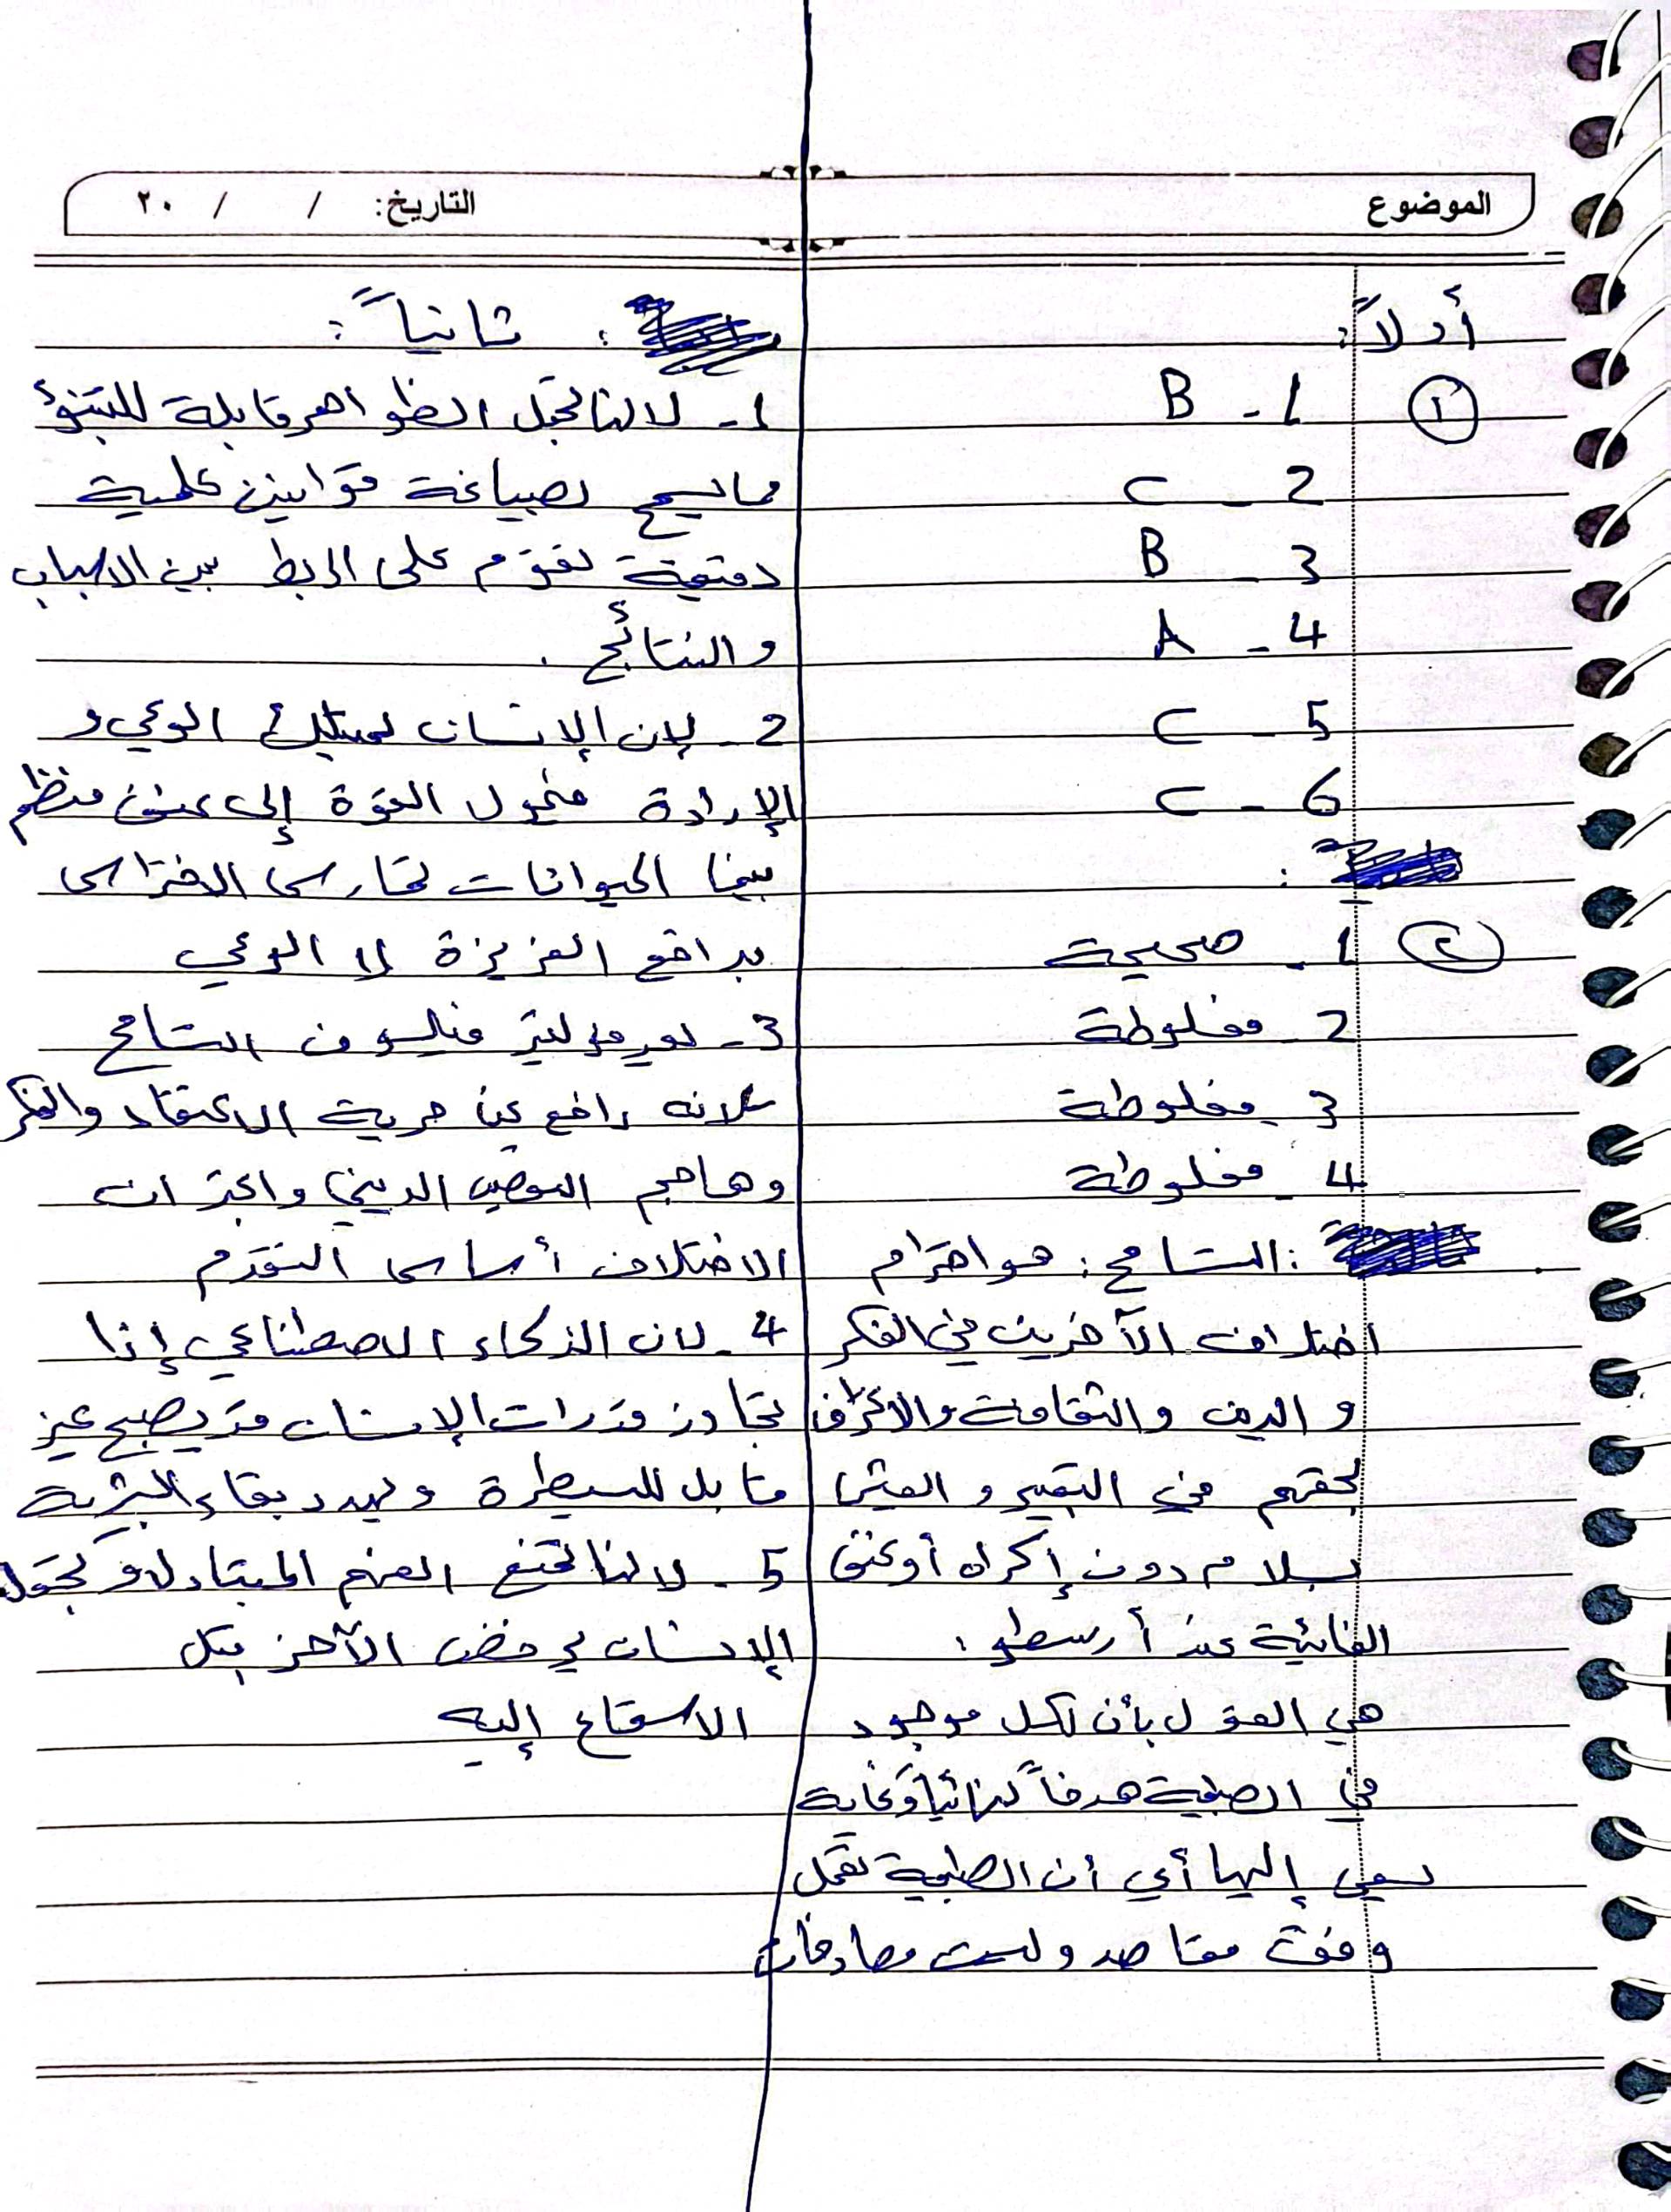 الموضوع
التاريخ: / / ٢٠
أولاً:
① 1 - B
2 - C
3 - B
4 - A
5 - C
6 - C
② 1 - صحيحة
2 - مغلوطة
3 - مغلوطة
4 - مغلوطة
: التسامح : هو احترام
اختلاف الآخرين في الفكر
و الدين والثقافة والاعتراف
بحقهم في التعبير و العيش
بسلام دون إكراه أو عنف
الغائية عند أرسطو :
هي القول بأن لكل موجود
في الطبيعة هدفاً نهائياً وغاية
يسعى إليها أي أن الطبيعة تعمل
وفق مقاصد وليست مصادفات
: ثانياً :
1 - لانها تجعل الظواهر قابلة للتنبؤ
مما يسمح بصياغة قوانين علمية
دقيقة تقوم على الربط بين الاسباب
والنتائج .
2 - لإن الإنسان يمتلك الوعي و
الإرادة فيحول القوة إلى عنف منظم
بينما الحيوانات تمارس الافتراس
بدافع الغريزة لا الوعي
3 - يعد فولتير فيلسوف التسامح
لانه دافع عن حرية الاعتقاد والفكر
وهاجم التعصب الديني واعتبر ان
الاختلاف أساس التقدم
4 - لان الذكاء الاصطناعي إذا
تجاوز قدرات الإنسان قد يصبح غير
قابل للسيطرة ويهدد بقاء البشرية
5 - لانها تمنع الفهم المتبادل و تجعل
الإنسان يرفض الآخر قبل
الاستماع إليه